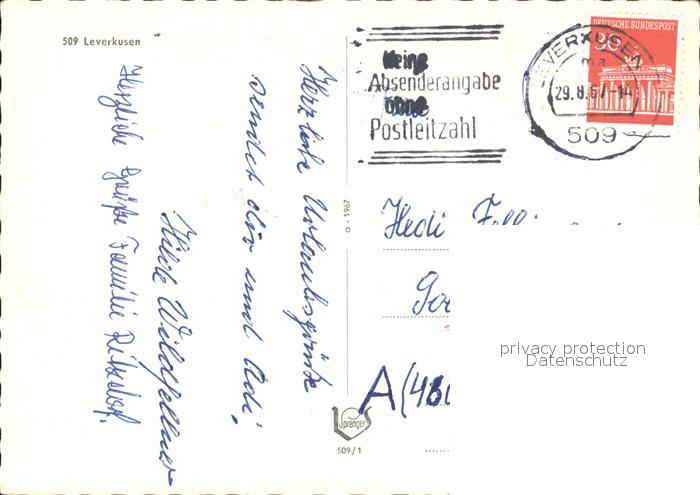 509 Leverkusen
Keine
Absenderangabe
ohne
Postleitzahl
DEUTSCHE BUNDESPOST
30
LEVERKUSEN
ma
29.8.67-14
509
Herzliche Urlaubsgrüße
sendet dir und Adi,
Hilde Wildfellner
Herzliche Grüße Familie
a - 1967
Hedi
A (48
Spranger
509/1
privacy protection
Datenschutz